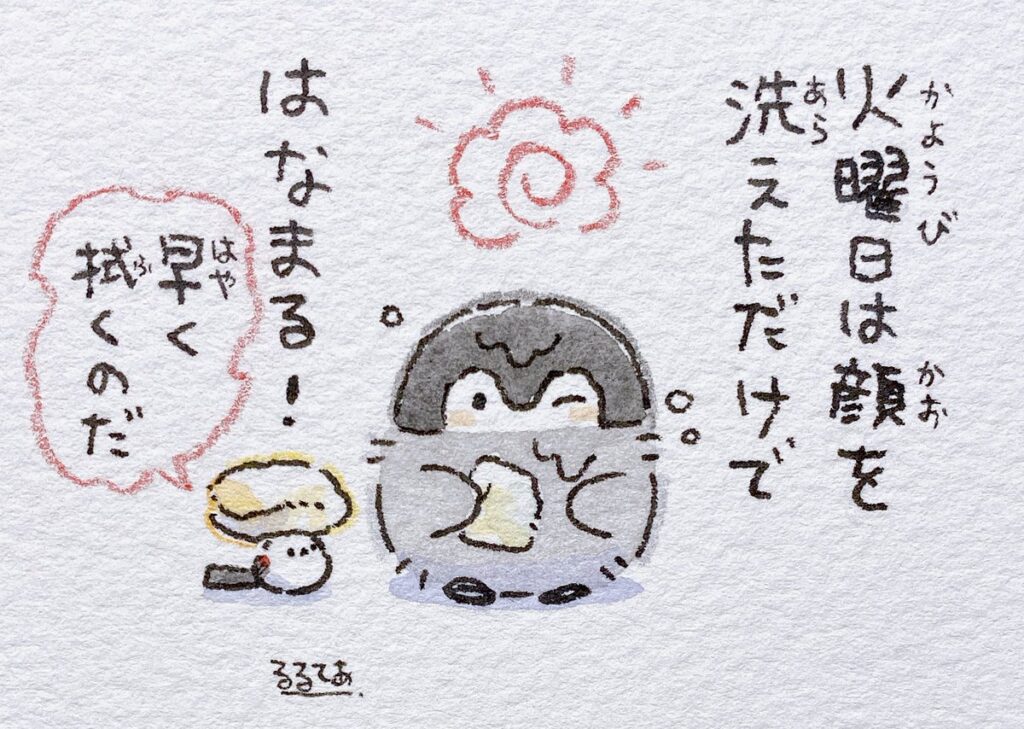 火曜日は顔を
洗えただけで
はなまる!
早く
拭くのだ
るるてあ
かようび
かお
あら
はや
ふ